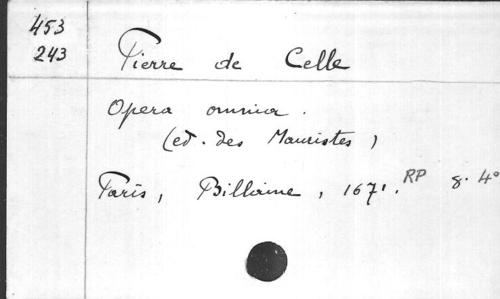 453
243
Pierre de Celle
Opera omnia.
(ed. des Mauristes)
Paris, Billaine, 1671. RP g. 4°